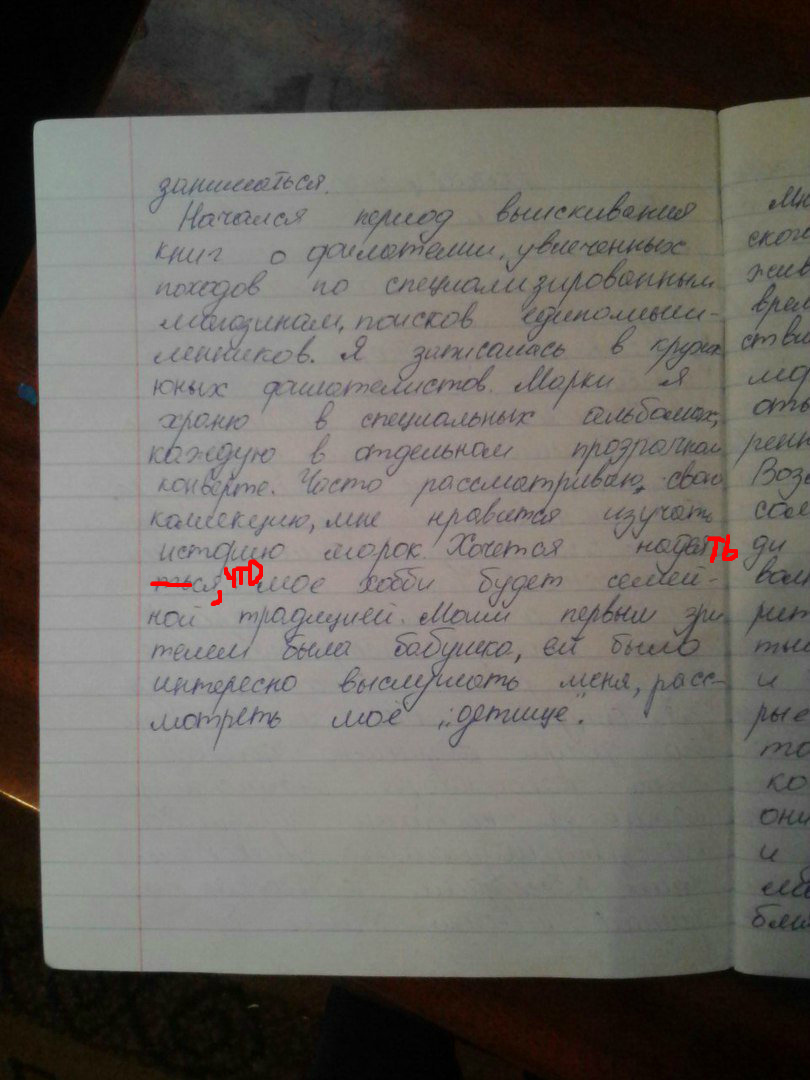 заниматься.
Начался период выискивания
книг о филателии, увлеченных
походов по специализированным
магазинам, поисков единомыш-
ленников. Я записалась в кружок
юных филателистов. Марки я
храню в специальных альбомах,
каждую в отдельном прозрачном
конверте. Часто рассматриваю свою
коллекцию, мне нравится изучать
историю марок. Хочется надея ть
ться , что мое хобби будет семей-
ной традицией. Моим первым зри
телем была бабушка, ей было
интересно выслушать меня, расс-
мотреть моё „детище".
Мн
ског
жив
врем
стви
мо
оты
рен
Воз
сам
ди
вол
рит
ты
и
рые
то
ко
они
и